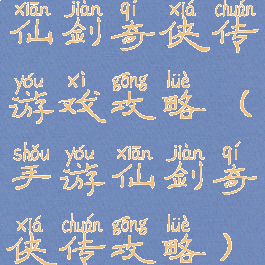 xiān jiàn qí xiá chuán
仙剑奇侠传
yóu xì gōng lüè
游戏攻略（
shǒu yóu xiān jiàn qí
手游仙剑奇
xiá chuán gōng lüè
侠传攻略）